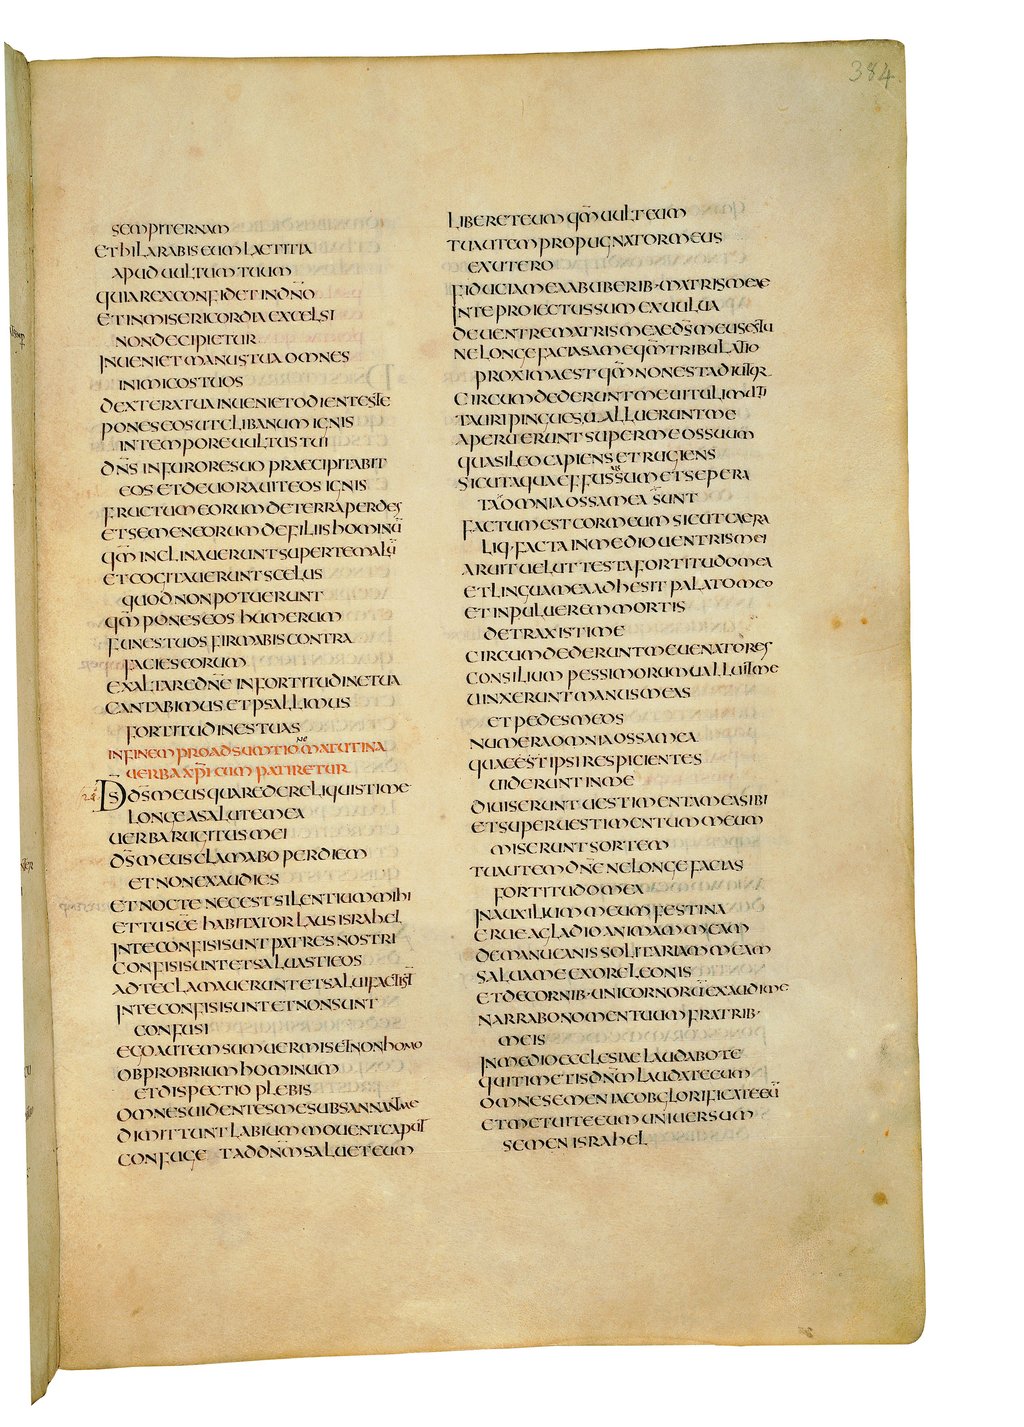 384
SEMPITERNAM
ET HILARABIS EUM LAETITIA
APUD UULTUM TUUM
QUIA REX CONFIDET IN DÑO
ET IN MISERICORDIA EXCELSI
NON DECIPIETUR
INUENIET MANUS TUA OMNES
INIMICOS TUOS
DEXTERA TUA INUENIET ODIENTES TE
PONES EOS UT CLIBANUM IGNIS
IN TEMPORE UULTUS TUI
DÑS IN FURORE SUO PRAECIPITABIT
EOS ET DEUORAUIT EOS IGNIS
FRUCTUM EORUM DE TERRA PERDES
ET SEMEN EORUM DE FILIIS HOMINŪ
QM̄ INCLINAUERUNT SUPER TE MALŪ
ET COGITAUERUNT SCELUS
QUOD NON POTUERUNT
QM̄ PONES EOS HUMERUM
FUNES TUOS FIRMABIS CONTRA
FACIES EORUM
EXALTARE DÑE IN FORTITUDINE TUA
CANTABIMUS ET PSALLIMUS
FORTITUDINES TUAS
IN FINEM PRO ADSUMTIONE MATUTINA
UERBA XP̄I CUM PATIRETUR
DS̄ DS̄ MEUS QUARE DERELIQUISTI ME
LONGE A SALUTE MEA
UERBA RUGITUS MEI
DS̄ MEUS CLAMABO PER DIEM
ET NON EXAUDIES
ET NOCTE NEC EST SILENTIUM MIHI
ET TU SCE̅ HABITATOR LAUS ISRAHEL
IN TE CONFISI SUNT PATRES NOSTRI
CONFISI SUNT ET SALUASTI EOS
AD TE CLAMAUERUNT ET SALUI FACTI ST̄
IN TE CONFISI SUNT ET NON SUNT
CONFUSI
EGO AUTEM SUM UERMIS ET NON HOMO
OBPROBRIUM HOMINUM
ET DISPECTIO PLEBIS
OMNES UIDENTES ME SUBSANNANT ME
DIMITTUNT LABIUM MOUENT CAPUT
CONFUGE T AD DÑM SALUET EUM
LIBERET EUM QM̄ UULT EUM
TU AUTEM PROPUGNATOR MEUS
EX UTERO
FIDUCIA MEA AB UBERIB· MATRIS MEAE
IN TE PROIECTUS SUM EX UULUA
DE UENTRE MATRIS MEAE DS̄ MEUS ES TU
NE LONGE FACIAS A ME QM̄ TRIBULATIO
PROXIMA EST QM̄ NON EST ADIUTOR
CIRCUMDEDERUNT ME UITULI MULTI
TAURI PINGUES UALLUERUNT ME
APERUERUNT SUPER ME OS SUUM
QUASI LEO CAPIENS ET RUGIENS
SICUT AQUA EFFUSUS SUM ET SEPERA
TA OMNIA OSSA MEA SUNT
FACTUM EST COR MEUM SICUT CAERA
LIQ· FACTA IN MEDIO UENTRIS MEI
ARUIT UELUT TESTA FORTITUDO MEA
ET LINGUA MEA ADHESIT PALATO MEO
ET IN PULUEREM MORTIS
DETRAXISTI ME
CIRCUMDEDERUNT ME UENATORES
CONSILIUM PESSIMORUM UALLAUIT ME
UINXERUNT MANUS MEAS
ET PEDES MEOS
NUMERA OMNIA OSSA MEA
QUAE EST IPSI RESPICIENTES
UIDERUNT IN ME
DIUISERUNT UESTIMENTA MEA SIBI
ET SUPER UESTIMENTUM MEUM
MISERUNT SORTEM
TU AUTEM DÑE NE LONGE FACIAS
FORTITUDO MEA
IN AUXILIUM MEUM FESTINA
ERUE A GLADIO ANIMAM MEAM
DE MANU CANIS SOLITARIAM MEAM
SALUA ME EX ORE LEONIS
ET DE CORNIB· UNICORNORŪ EXAUDI ME
NARRABO NOMEN TUUM FRATRIB·
MEIS
IN MEDIO ECCLESIAE LAUDABO TE
QUI TIMETIS DÑM LAUDATE EUM
OMNE SEMEN IACOB GLORIFICATE EŪ
ET METUITE EUM UNIUERSUM
SEMEN ISRAHEL